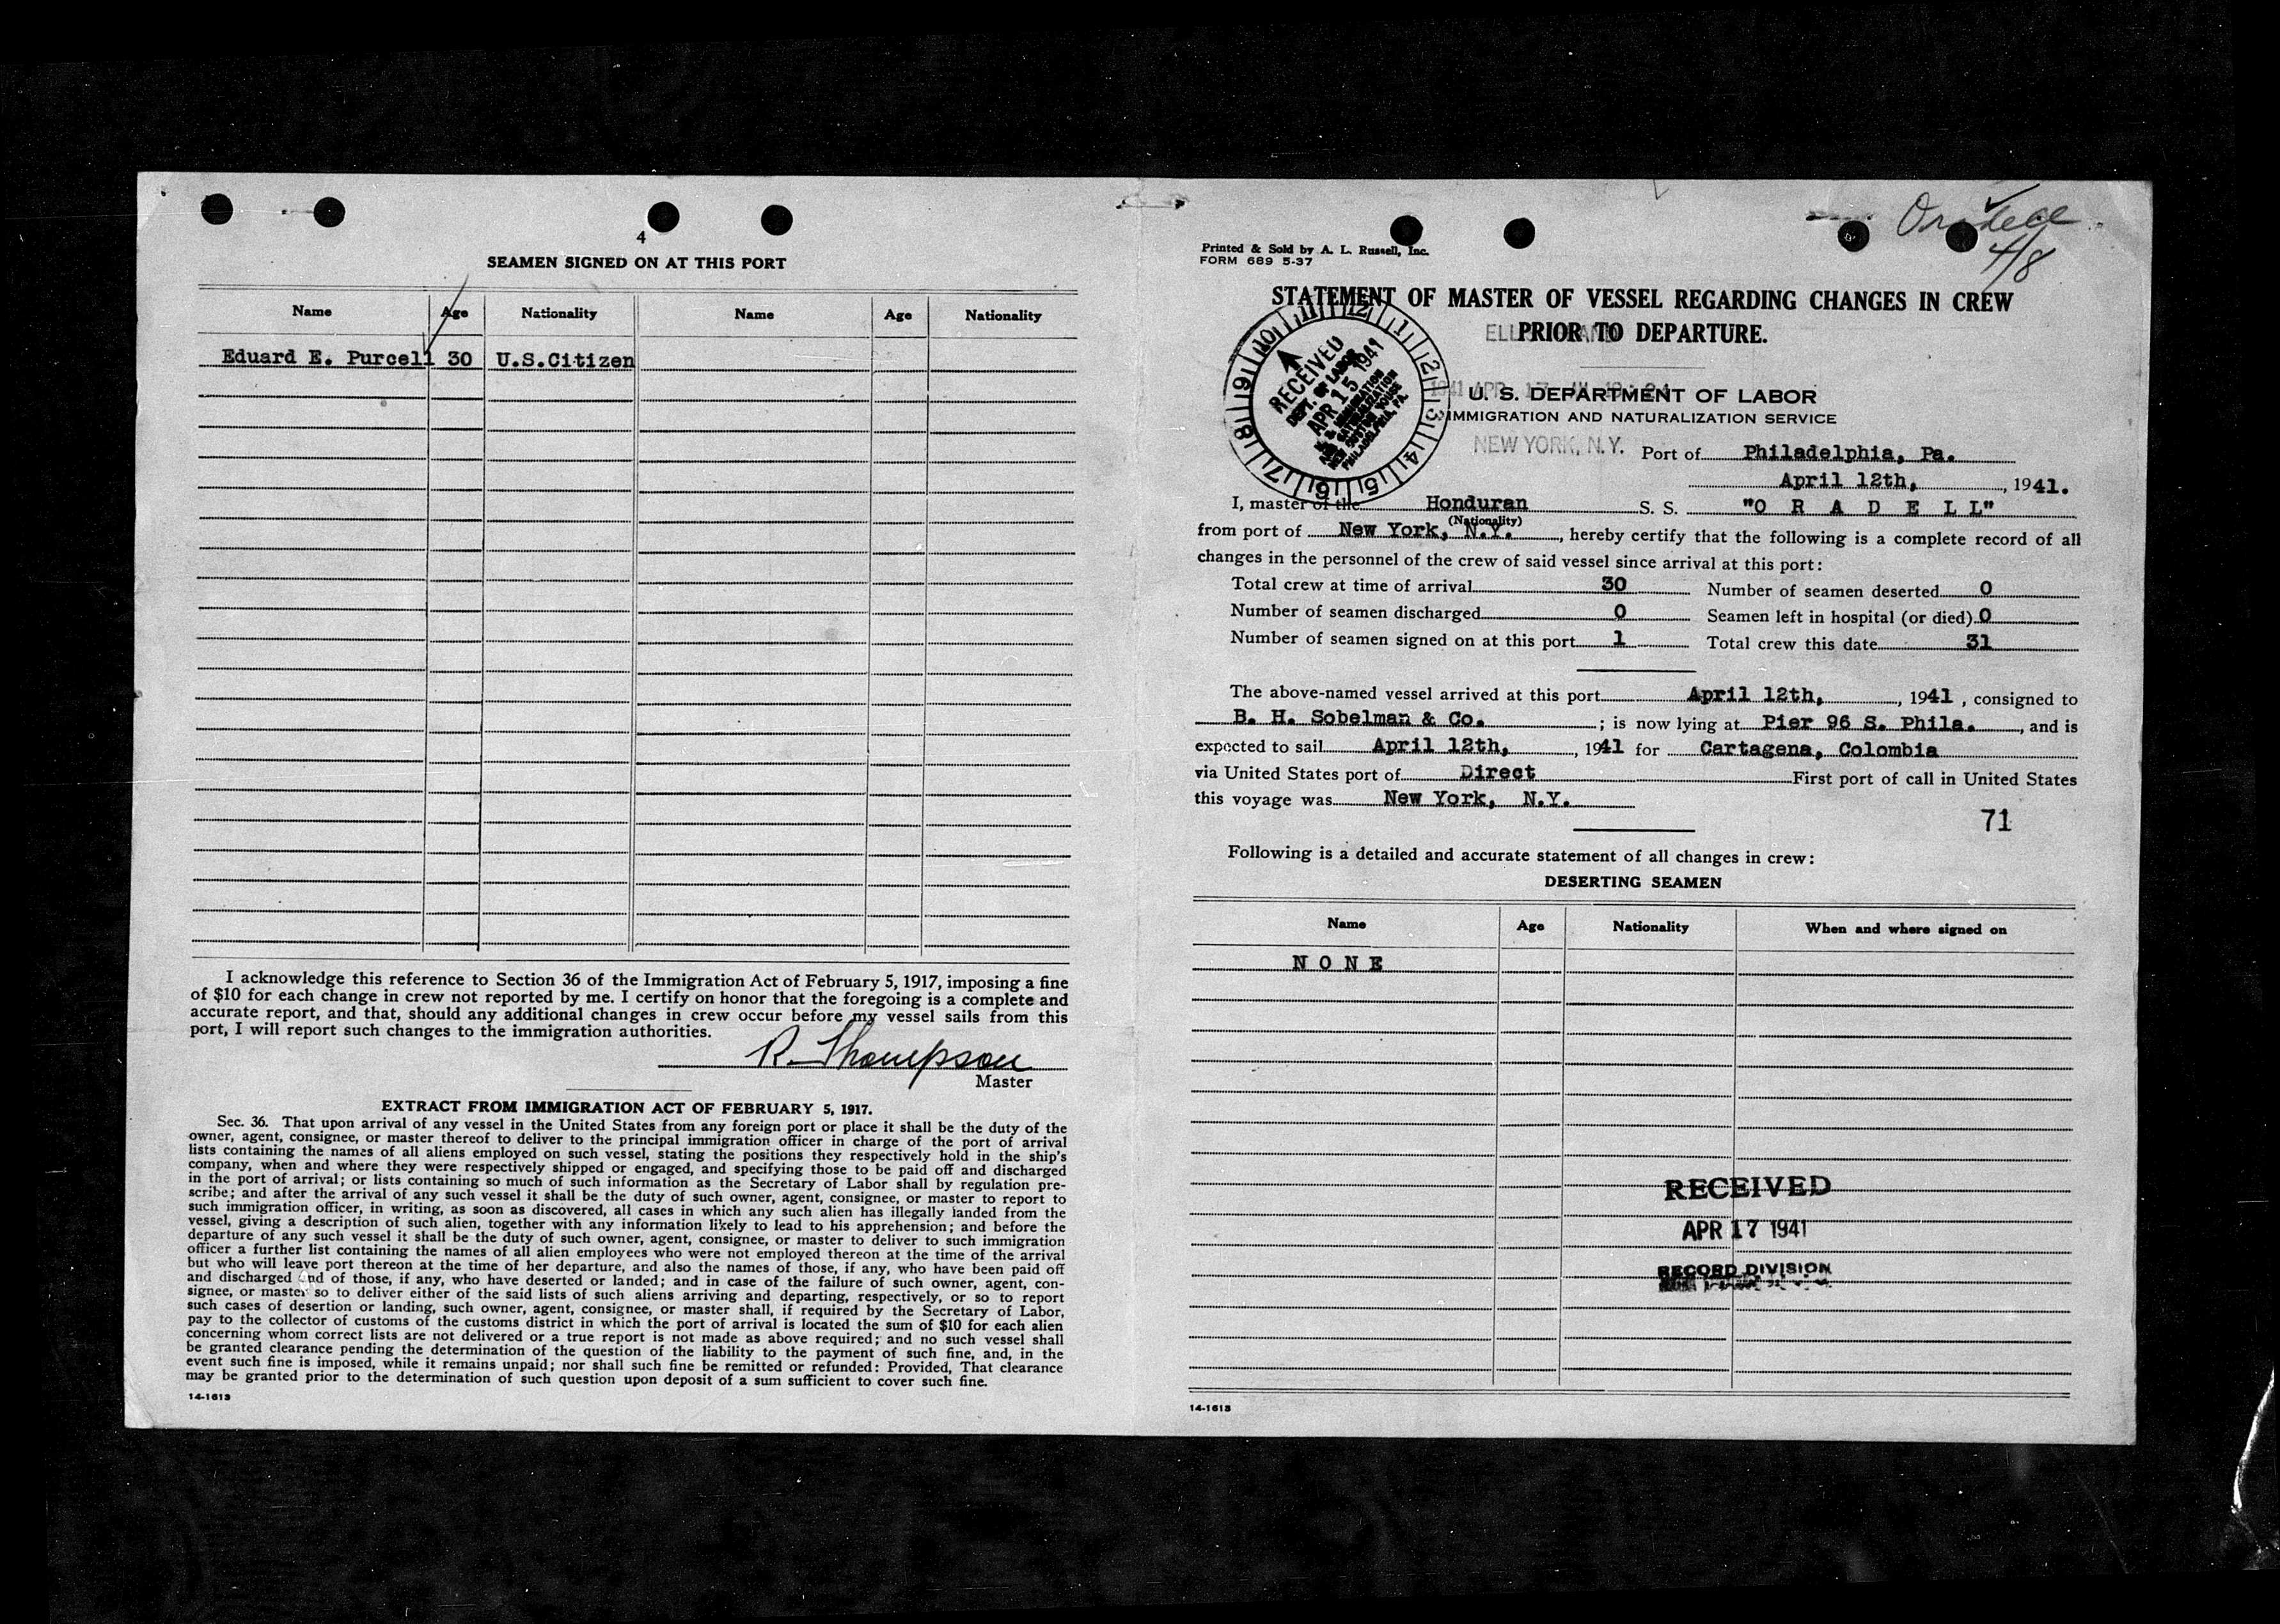 4
SEAMEN SIGNED ON AT THIS PORT
Name Age Nationality Name Age Nationality
Eduard E. Purcell 30 U.S.Citizen
I acknowledge this reference to Section 36 of the Immigration Act of February 5, 1917, imposing a fine
of $10 for each change in crew not reported by me. I certify on honor that the foregoing is a complete and
accurate report, and that, should any additional changes in crew occur before my vessel sails from this
port, I will report such changes to the immigration authorities.
R. Thompson
Master
EXTRACT FROM IMMIGRATION ACT OF FEBRUARY 5, 1917.
Sec. 36. That upon arrival of any vessel in the United States from any foreign port or place it shall be the duty of the
owner, agent, consignee, or master thereof to deliver to the principal immigration officer in charge of the port of arrival
lists containing the names of all aliens employed on such vessel, stating the positions they respectively hold in the ship's
company, when and where they were respectively shipped or engaged, and specifying those to be paid off and discharged
in the port of arrival; or lists containing so much of such information as the Secretary of Labor shall by regulation pre-
scribe; and after the arrival of any such vessel it shall be the duty of such owner, agent, consignee, or master to report to
such immigration officer, in writing, as soon as discovered, all cases in which any such alien has illegally landed from the
vessel, giving a description of such alien, together with any information likely to lead to his apprehension; and before the
departure of any such vessel it shall be the duty of such owner, agent, consignee, or master to deliver to such immigration
officer a further list containing the names of all alien employees who were not employed thereon at the time of the arrival
but who will leave port thereon at the time of her departure, and also the names of those, if any, who have been paid off
and discharged and of those, if any, who have deserted or landed; and in case of the failure of such owner, agent, con-
signee, or master so to deliver either of the said lists of such aliens arriving and departing, respectively, or so to report
such cases of desertion or landing, such owner, agent, consignee, or master shall, if required by the Secretary of Labor,
pay to the collector of customs of the customs district in which the port of arrival is located the sum of $10 for each alien
concerning whom correct lists are not delivered or a true report is not made as above required; and no such vessel shall
be granted clearance pending the determination of the question of the liability to the payment of such fine, and, in the
event such fine is imposed, while it remains unpaid; nor shall such fine be remitted or refunded: Provided, That clearance
may be granted prior to the determination of such question upon deposit of a sum sufficient to cover such fine.
14-1613
Oradell
4/8
Printed & Sold by A. L. Russell, Inc.
FORM 689 5-37
STATEMENT OF MASTER OF VESSEL REGARDING CHANGES IN CREW
PRIOR TO DEPARTURE.
RECEIVED
DEPT. OF LABOR
APR 15 1941
PHILADELPHIA, PA.
U. S. DEPARTMENT OF LABOR
IMMIGRATION AND NATURALIZATION SERVICE
NEW YORK, N.Y.
Port of Philadelphia, Pa.
April 12th, , 1941.
I, master of the Honduran S. S. "O R A D E L L"
(Nationality)
from port of New York, N.Y. , hereby certify that the following is a complete record of all
changes in the personnel of the crew of said vessel since arrival at this port:
Total crew at time of arrival 30 Number of seamen deserted 0
Number of seamen discharged 0 Seamen left in hospital (or died) 0
Number of seamen signed on at this port 1 Total crew this date 31
The above-named vessel arrived at this port April 12th, , 1941 , consigned to
B. H. Sobelman & Co. ; is now lying at Pier 96 S. Phila. , and is
expected to sail April 12th, , 1941 for Cartagena, Colombia
via United States port of Direct First port of call in United States
this voyage was New York, N.Y.
71
Following is a detailed and accurate statement of all changes in crew:
DESERTING SEAMEN
Name Age Nationality When and where signed on
N O N E
RECEIVED
APR 17 1941
RECORD DIVISION
14-1613